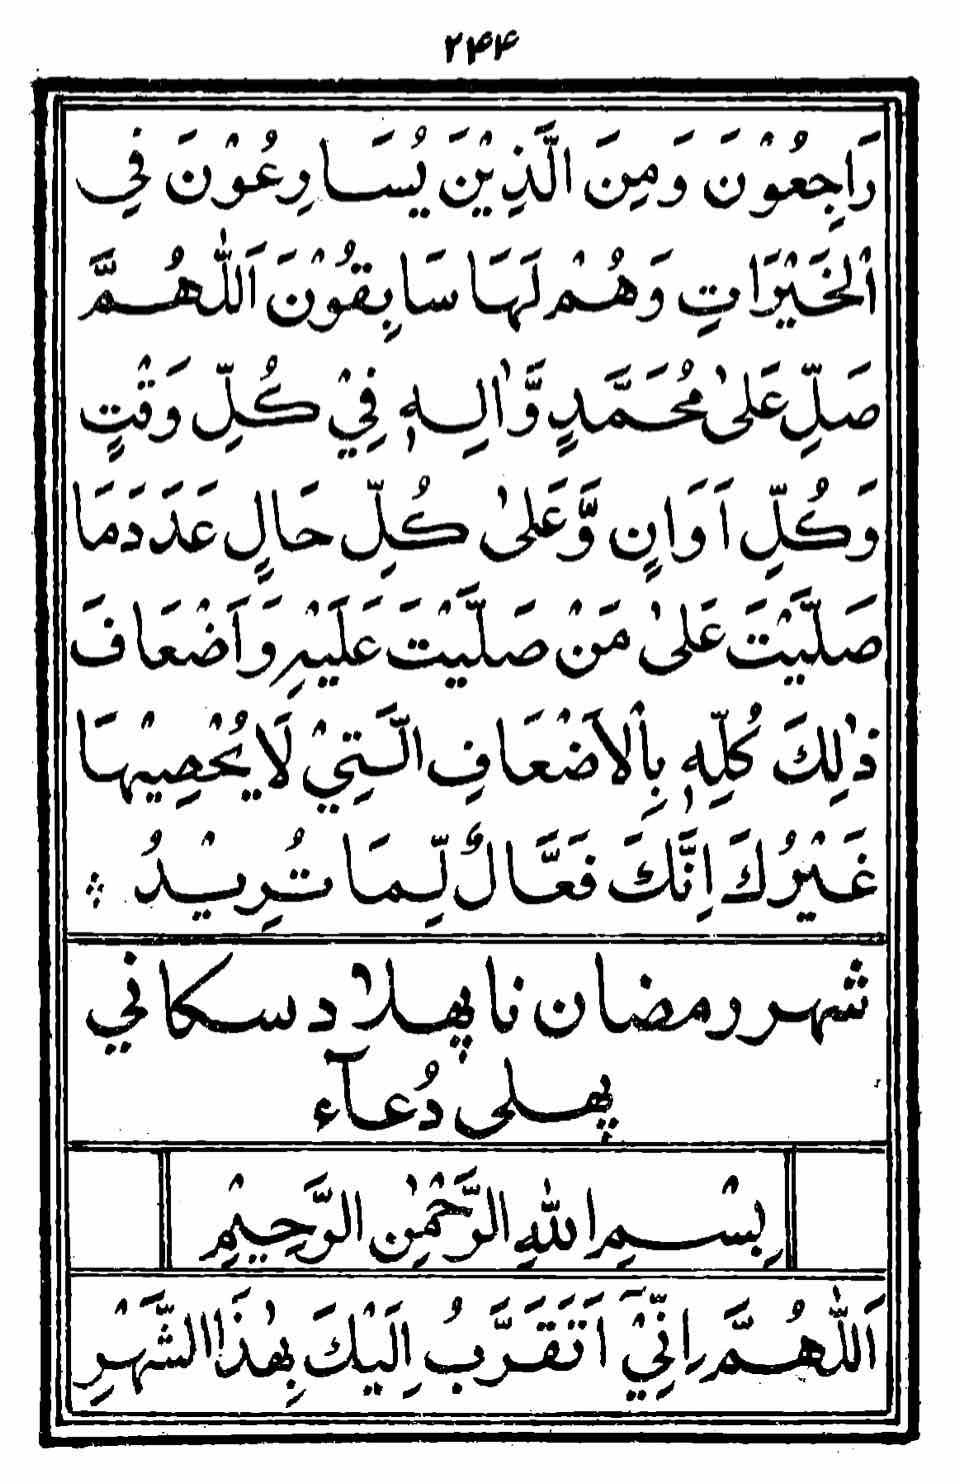 ۲۴۴
رَاجِعُوْنَ وَمِنَ الَّذِيْنَ يُسَارِعُوْنَ فِي
الْخَيْرَاتِ وَهُمْ لَهَا سَابِقُوْنَ اَللّٰهُمَّ
صَلِّ عَلىٰ مُحَمَّدٍ وَّاٰلِهٖ فِيْ كُلِّ وَقْتٍ
وَكُلِّ اَوَانٍ وَّعَلىٰ كُلِّ حَالٍ عَدَدَ مَا
صَلَّيْتَ عَلىٰ مَنْ صَلَّيْتَ عَلَيْهِ وَاَضْعَافَ
ذٰلِكَ كُلِّهٖ بِالْاَضْعَافِ الَّتِيْ لَا يُحْصِيْهَا
غَيْرُكَ اِنَّكَ فَعَّالٌ لِّمَا تُرِيْدُ ؞
شهر رمضان نا پهلا دسكاني
پهلى دُعآء
بِسْمِ اللّٰهِ الرَّحْمٰنِ الرَّحِيْمِ
اَللّٰهُمَّ اِنِّيْٓ اَتَقَرَّبُ اِلَيْكَ بِهٰذَا الشَّهْرِ